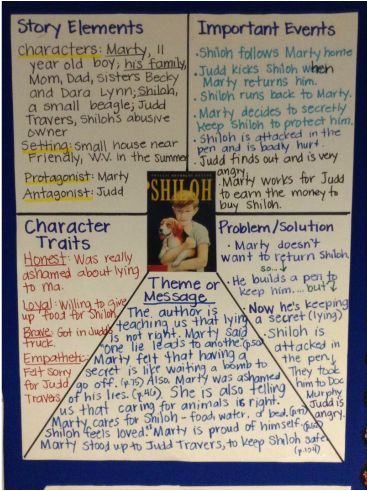 Story Elements
characters: Marty, 11
year old boy; his family,
Mom, Dad, sisters Becky
and Dara Lynn; Shiloh,
a small beagle; Judd
Travers, Shiloh's abusive
owner
Setting: small house near
Friendly, W.V. in the summer
Protagonist: Marty
Antagonist: Judd
Important Events
• Shiloh follows Marty home
• Judd kicks Shiloh when
Marty returns him.
• Shiloh runs back to Marty.
• Marty decides to secretly
keep Shiloh to protect him.
• Shiloh is attacked in the
pen and is badly hurt.
• Judd finds out and is very
angry.
• Marty works for Judd
to earn the money to
buy Shiloh.
SHILOH
Character
Traits
Honest: Was really
ashamed about lying
to ma.
Loyal: Willing to give
up food for Shiloh.
Brave: Got in Judd's
truck.
Empathetic:
Felt sorry
for Judd
Travers
Problem/Solution
• Marty doesn't
want to return Shiloh.
so...
• He builds a pen to
keep him.... but
Now he's keeping
a secret (lying)
• Shiloh is
attacked in
the pen
They took
him to Doc
Murphy
Judd is
angry.
Theme or
Message
The author is
teaching us that lying
is not right. Marty said
"one lie leads to another."
Marty felt that having a
secret is like waiting a bomb to
go off. (p.75) Also, Marty was ashamed
of his lies. She is also telling
us that caring for animals is right.
Marty cares for Shiloh - food, water, & bed.
Shiloh feels loved. "Marty is proud of himself.
Marty stood up to Judd Travers, to keep Shiloh safe.